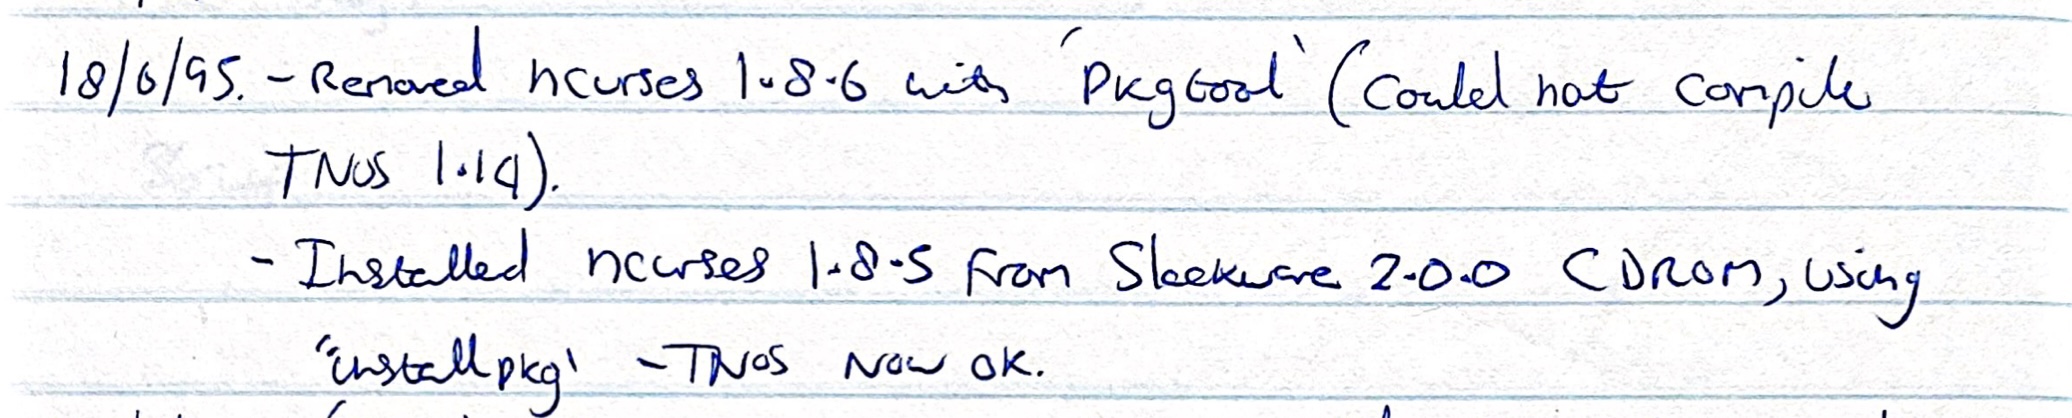 18/6/95. - Removed ncurses 1.8.6 with 'Pkgtool' (Could not compile
TNOS 1.14).
- Installed ncurses 1.8.5 from Slackware 2.0.0 CDROM, using
"installpkg' - TNOS NOW OK.